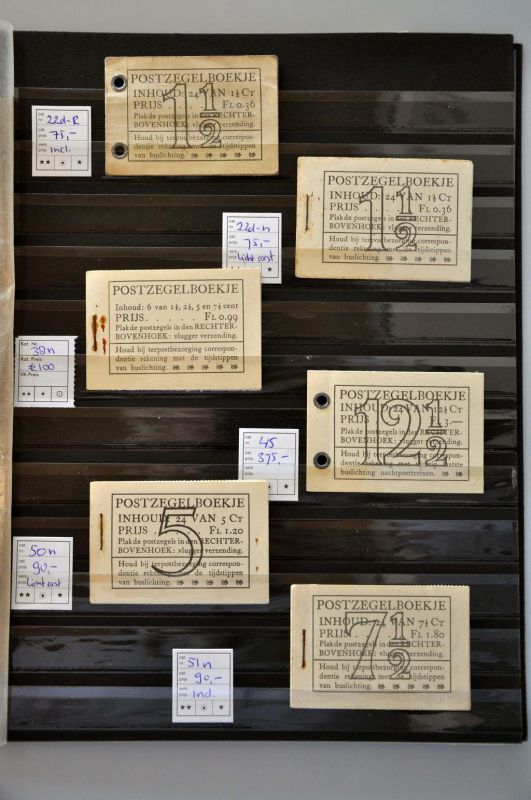 POSTZEGELBOEKJE
INHOUD: 24 VAN 1½ CT
PRIJS FL 0.36
Plak de postzegels in den RECHTER-
BOVENHOEK: vlugger verzending.
1½
Houd bij terpostbezorging correspon-
dentie rekening met de tijdstippen
van buslichting.
22d-R
75,-
incl.
POSTZEGELBOEKJE
INHOUD: 24 VAN 1½ CT
PRIJS FL 0.36
Plak de postzegels in den RECHTER-
BOVENHOEK: vlugger verzending.
1½
Houd bij terpostbezorging correspon-
dentie rekening met de tijdstippen
van buslichting.
22d-n
75,-
licht roest
POSTZEGELBOEKJE
Inhoud: 6 van 1½, 2½, 5 en 7½ cent
PRIJS. . . . . FL 0.99
Plak de postzegels in den RECHTER-
BOVENHOEK: vlugger verzending.
Houd bij terpostbezorging correspon-
dentie rekening met de tijdstippen
van buslichting.
Kat. Nr.
39n
Kat. Preis
€100
VK-Preis
POSTZEGELBOEKJE
INHOUD: 24 VAN 12½ CT
PRIJS 3.—
Plak de postzegels in den RECHTER-
BOVENHOEK: vlugger verzending.
12½
Houd bij terpostbezorging correspon-
dentie rekening met laatste
buslichting nachtposttreinen.
45
375,-
POSTZEGELBOEKJE
INHOUD: 24 VAN 5 CT
PRIJS FL 1.20
Plak de postzegels in den RECHTER-
BOVENHOEK: vlugger verzending.
5
Houd bij terpostbezorging correspon-
dentie rekening met de tijdstippen
van buslichting.
50n
90,-
licht roest
POSTZEGELBOEKJE
INHOUD: 24 VAN 7½ CT
PRIJS FL 1.80
Plak de postzegels in den RECHTER-
BOVENHOEK: vlugger verzending.
7½
Houd bij terpostbezorging correspon-
dentie rekening met de tijdstippen
van buslichting.
51n
90,-
incl.